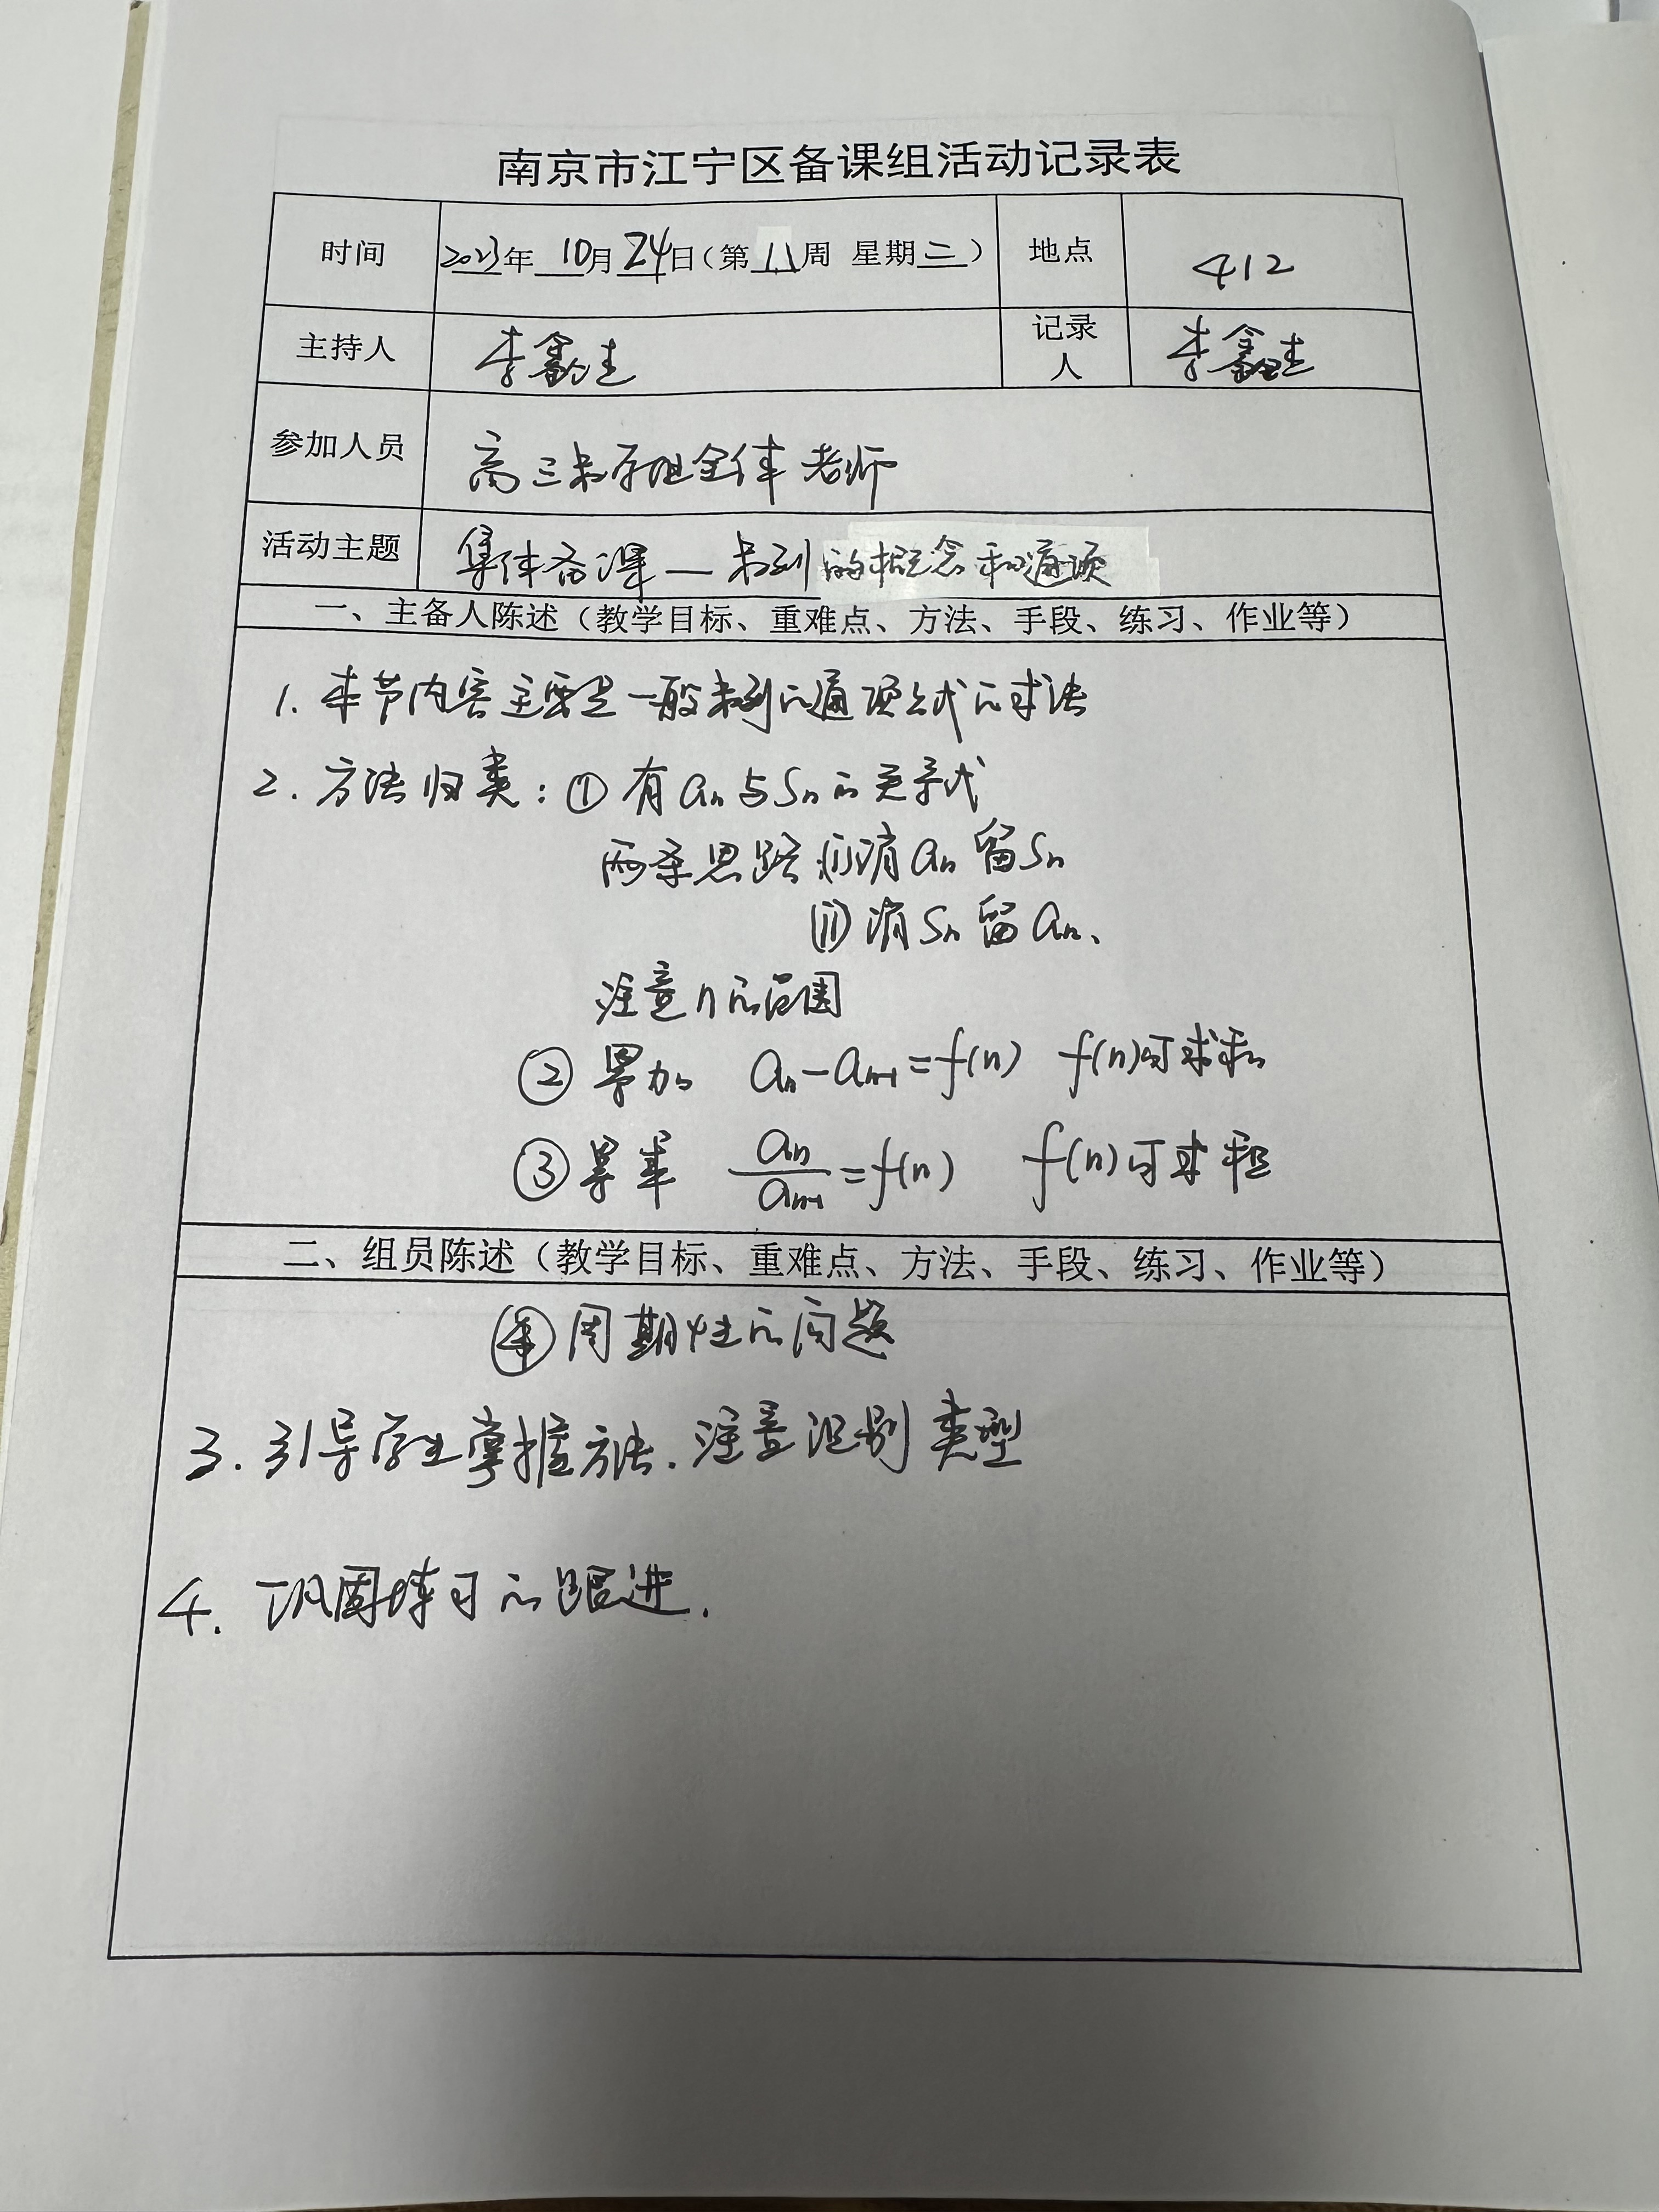 南京市江宁区备课组活动记录表
时间 2023年 10月 24日（第 八 周 星期 二 ） 地点 412
主持人 李鑫 记录人 李鑫
参加人员 高三数学组全体老师
活动主题 集体备课—数列的概念和通项
一、主备人陈述（教学目标、重难点、方法、手段、练习、作业等）
1. 本节内容主要是一般数列的通项公式的求法
2. 方法归类：① 有 an 与 Sn 的关系式
两条思路 (i) 消 an 留 Sn
(ii) 消 Sn 留 an、
注意 n 的范围
② 累加 an-an-1=f(n) f(n)可求和
③ 累乘 an/an-1=f(n) f(n)可求积
二、组员陈述（教学目标、重难点、方法、手段、练习、作业等）
④ 周期性的问题
3. 引导学生掌握方法. 注意识别类型
4. 巩固练习的跟进.